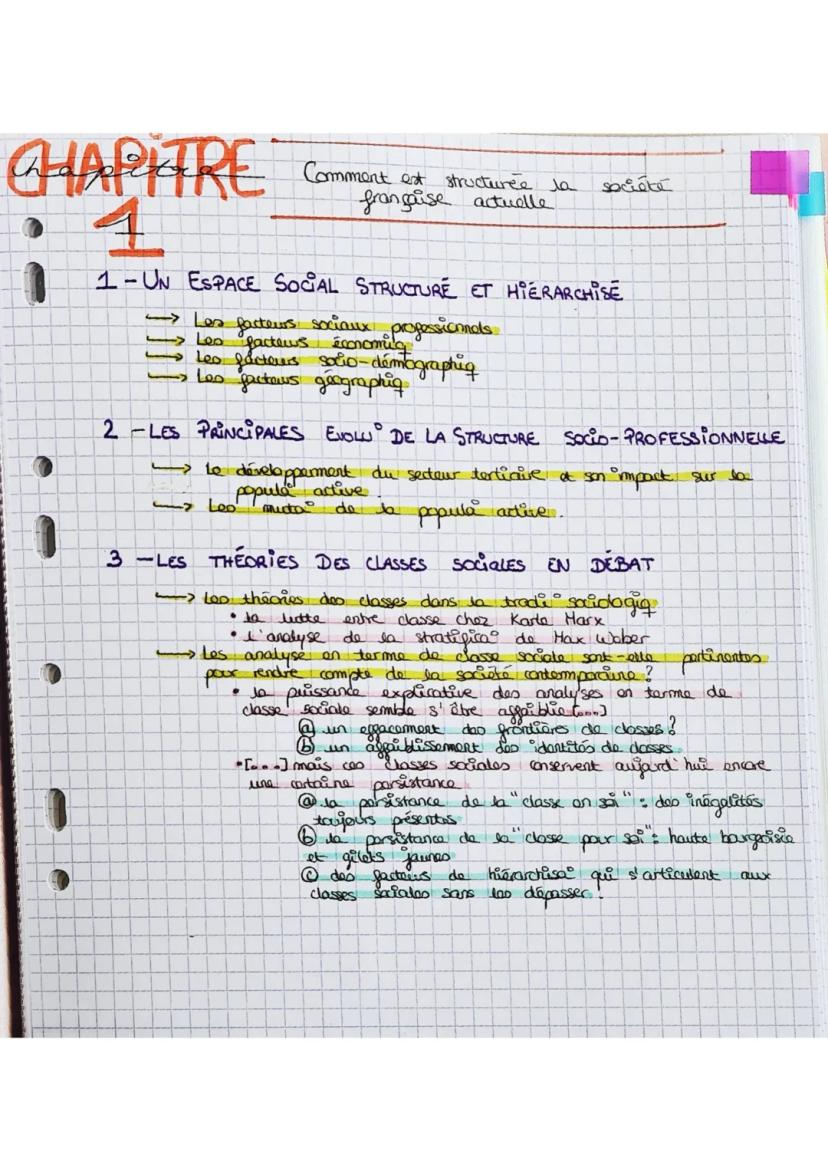 CHAPITRE
chapitre
1
Comment est structurée la société
française actuelle
1 - UN ESPACE SOCIAL STRUCTURÉ ET HIÉRARCHISÉ
→ Les facteurs sociaux professionnels
→ Les facteurs économiq
→ Les facteurs socio-démographiq
→ Les facteurs géographiq
2 - LES PRINCIPALES EVOLU° DE LA STRUCTURE SOCIO-PROFESSIONNELLE
→ Le développement du secteur tertiaire et son impact sur la
popula° active
→ Les muta° de la popula° active.
3 - LES THÉORIES DES CLASSES SOCIALES EN DÉBAT
→ Les théories des classes dans la tradi° sociologiq
• la lutte entre classe chez Karle Marx
• l'analyse de la stratifica° de Max Weber
→ Les analyse en terme de classe sociale sont-elle pertinentes
pour rendre compte de la société contemporaine ?
• la puissance explicative des analyses en terme de
classe sociale semble s'être affaiblie [...]
ⓐ un effacement des frontières de classes ?
ⓑ un affaiblissement des identités de classes
• [...] mais ces classes sociales conservent aujourd'hui encore
une certaine persistance
ⓐ la persistance de la "classe en soi" : des inégalités
toujours présentes
ⓑ la persistance de la "classe pour soi" : haute bourgeoisie
et gilets jaunes
ⓒ des facteurs de hiérarchisa° qui s'articulent aux
classes sociales sans les dépasser.